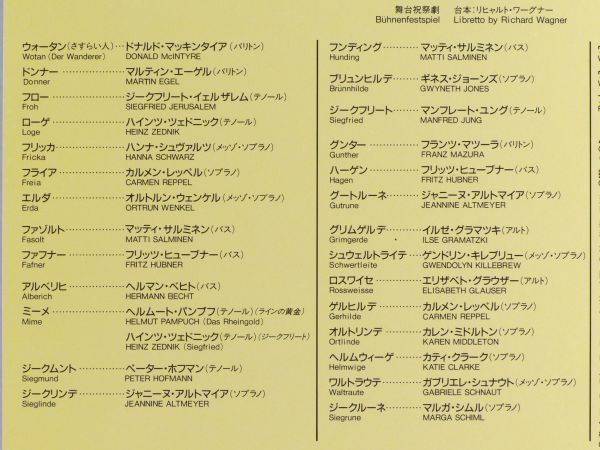 舞台祝祭劇 台本：リヒャルト・ワーグナー
Bühnenfestspiel Libretto by Richard Wagner
ウォータン（さすらい人）…ドナルド・マッキンタイア（バリトン）
Wotan (Der Wanderer) DONALD McINTYRE
ドンナー…………マルティン・エーゲル（バリトン）
Donner MARTIN EGEL
フロー……………ジークフリート・イェルザレム（テノール）
Froh SIEGFRIED JERUSALEM
ローゲ……………ハインツ・ツェドニック（テノール）
Loge HEINZ ZEDNIK
フリッカ…………ハンナ・シュヴァルツ（メッゾ・ソプラノ）
Fricka HANNA SCHWARZ
フライア…………カルメン・レッペル（ソプラノ）
Freia CARMEN REPPEL
エルダ……………オルトルン・ウェンケル（メッゾ・ソプラノ）
Erda ORTRUN WENKEL
ファゾルト………マッティ・サルミネン（バス）
Fasolt MATTI SALMINEN
ファフナー………フリッツ・ヒューブナー（バス）
Fafner FRITZ HÜBNER
アルベリヒ………ヘルマン・ベヒト（バス）
Alberich HERMANN BECHT
ミーメ……………ヘルムート・パンプフ（テノール）（ラインの黄金）
Mime HELMUT PAMPUCH (Das Rheingold)
ハインツ・ツェドニック（テノール）（ジークフリート）
HEINZ ZEDNIK (Siegfried)
ジークムント……ペーター・ホフマン（テノール）
Siegmund PETER HOFMANN
ジークリンデ……ジャニーヌ・アルトマイア（ソプラノ）
Sieglinde JEANNINE ALTMEYER
フンディング………マッティ・サルミネン（バス）
Hunding MATTI SALMINEN
ブリュンヒルデ……ギネス・ジョーンズ（ソプラノ）
Brünnhilde GWYNETH JONES
ジークフリート……マンフレート・ユング（テノール）
Siegfried MANFRED JUNG
グンター……………フランツ・マツーラ（バリトン）
Gunther FRANZ MAZURA
ハーゲン……………フリッツ・ヒューブナー（バス）
Hagen FRITZ HÜBNER
グートルーネ………ジャニーヌ・アルトマイア（ソプラノ）
Gutrune JEANNINE ALTMEYER
グリムゲルデ………イルゼ・グラマツキ（アルト）
Grimgerde ILSE GRAMATZKI
シュウェルトライテ…ゲンドリン・キレブリュー（メッゾ・ソプラノ）
Schwertleite GWENDOLYN KILLEBREW
ロスワイセ…………エリザベト・グラウザー（アルト）
Rossweisse ELISABETH GLAUSER
ゲルヒルデ…………カルメン・レッペル（ソプラノ）
Gerhilde CARMEN REPPEL
オルトリンデ………カレン・ミドルトン（ソプラノ）
Ortlinde KAREN MIDDLETON
ヘルムウィーゲ……カティ・クラーク（ソプラノ）
Helmwige KATIE CLARKE
ワルトラウテ………ガブリエレ・シュナウト（メッゾ・ソプラノ）
Waltraute GABRIELE SCHNAUT
ジークルーネ………マルガ・シムル（ソプラノ）
Siegrune MARGA SCHIML